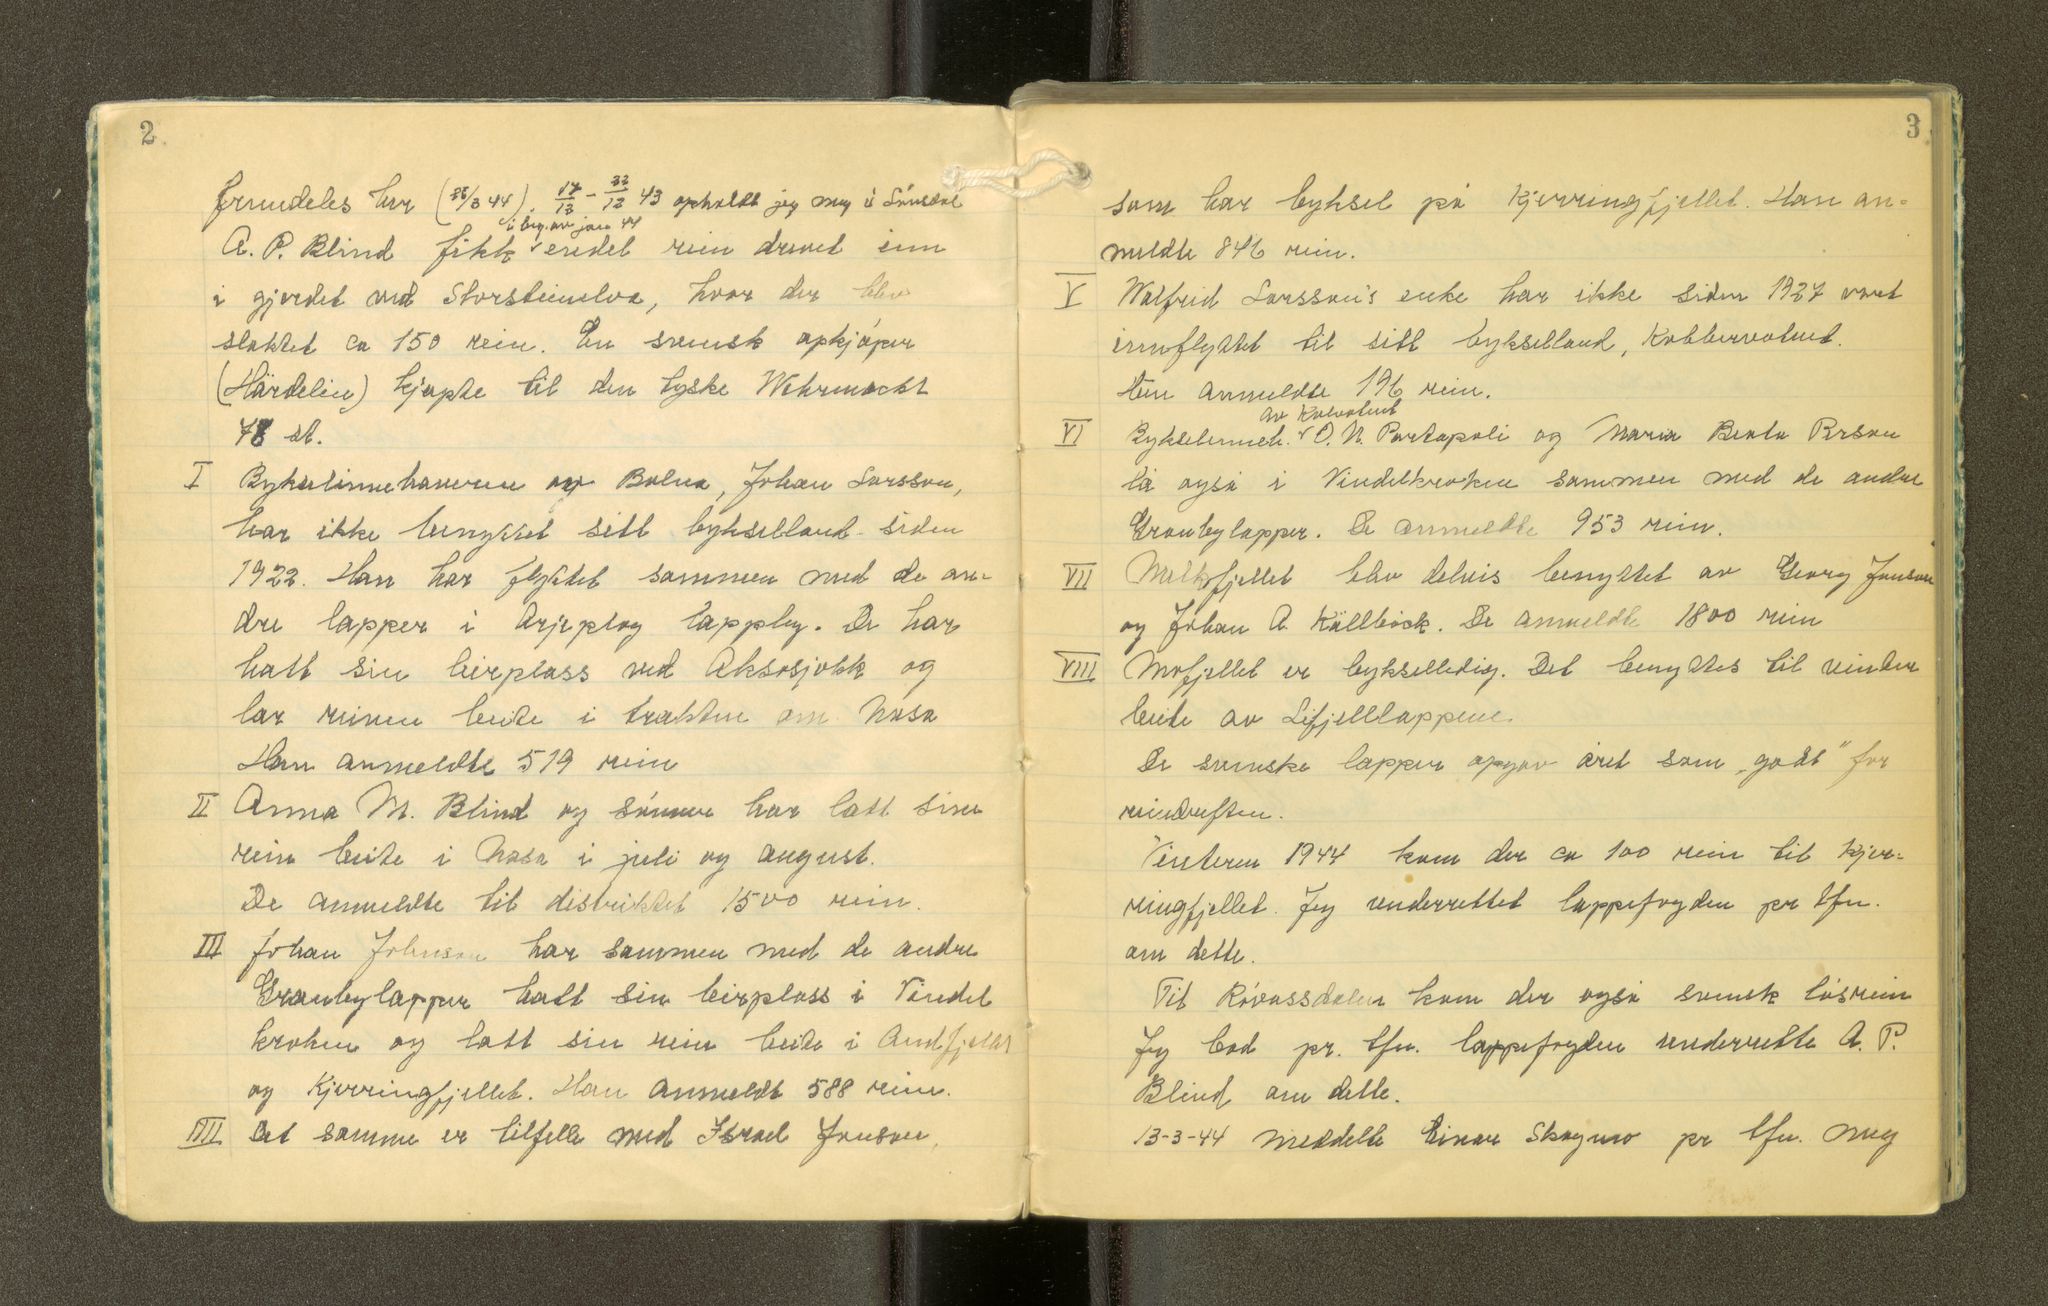 2
fremdeles her (28/3 44). 17/12 - 22/12 43 opholdt jeg meg i Lönsdal
i beg. av jan 44
A. P. Blind fikk endel rein drevet inn
i gjerdet ved Storsteinelva, hvor der blev
slaktet ca 150 rein. En svensk opkjøper
(Härdelin) kjøpte til den tyske Wehrmacht
78 st.
I Bykselinnehaveren av Bolna, Johan Larsson,
har ikke benyttet sitt bykselland siden
1922. Han har flyttet sammen med de an-
dre lapper i Arjeplog lappby. De har
hatt sin leirplass ved Aksosjokk og
lar reinen beite i trakten om Nasa
Han anmeldte 519 rein
II Anna M. Blind og sönner har latt sin
rein beite i Nasa i juli og august.
De anmeldte til distriktet 1500 rein.
III Johan Johnson har sammen med de andre
Granbylapper hatt sin leirplass i Vindel
kroken og latt sin rein beite i Andfjellet
og Kjerringfjellet. Han anmeldt 588 rein.
IIII Det samme er tilfelle med Israel Jonsson,
3
som har byksel på Kjerringfjellet. Han an-
meldte 846 rein.
V Walfrid Larsson's enke har ikke siden 1927 vært
innflyttet til sitt bykselland, Kobbervatnet.
Hun anmeldte 196 rein.
av Kalvatnet
VI Bykselinneh. O. N. Partapoli og Maria Beata Persson
lå også i Vindelkroken sammen med de andre
Granbylapper. De anmeldte 953 rein.
VII Melkfjellet blev delvis benyttet av Georg Jonsson
og Johan A. Källbäck. De anmeldte 1800 rein
VIII Mofjellet er bykselledig. Det benyttes til vinter
beite av Lifjelllappene.
De svenske lapper opgav året som "godt" for
reindriften.
Vinteren 1944 kom der ca 100 rein til Kjer-
ringfjellet. Jeg underrettet lappefogden pr tfn.
om dette.
Til Røvassdalen kom der også svensk løsrein
Jeg bad pr. tfn. lappefogden underrette A. P.
Blind om dette.
13-3-44 meddelte Einar Skogmo pr tfn. meg